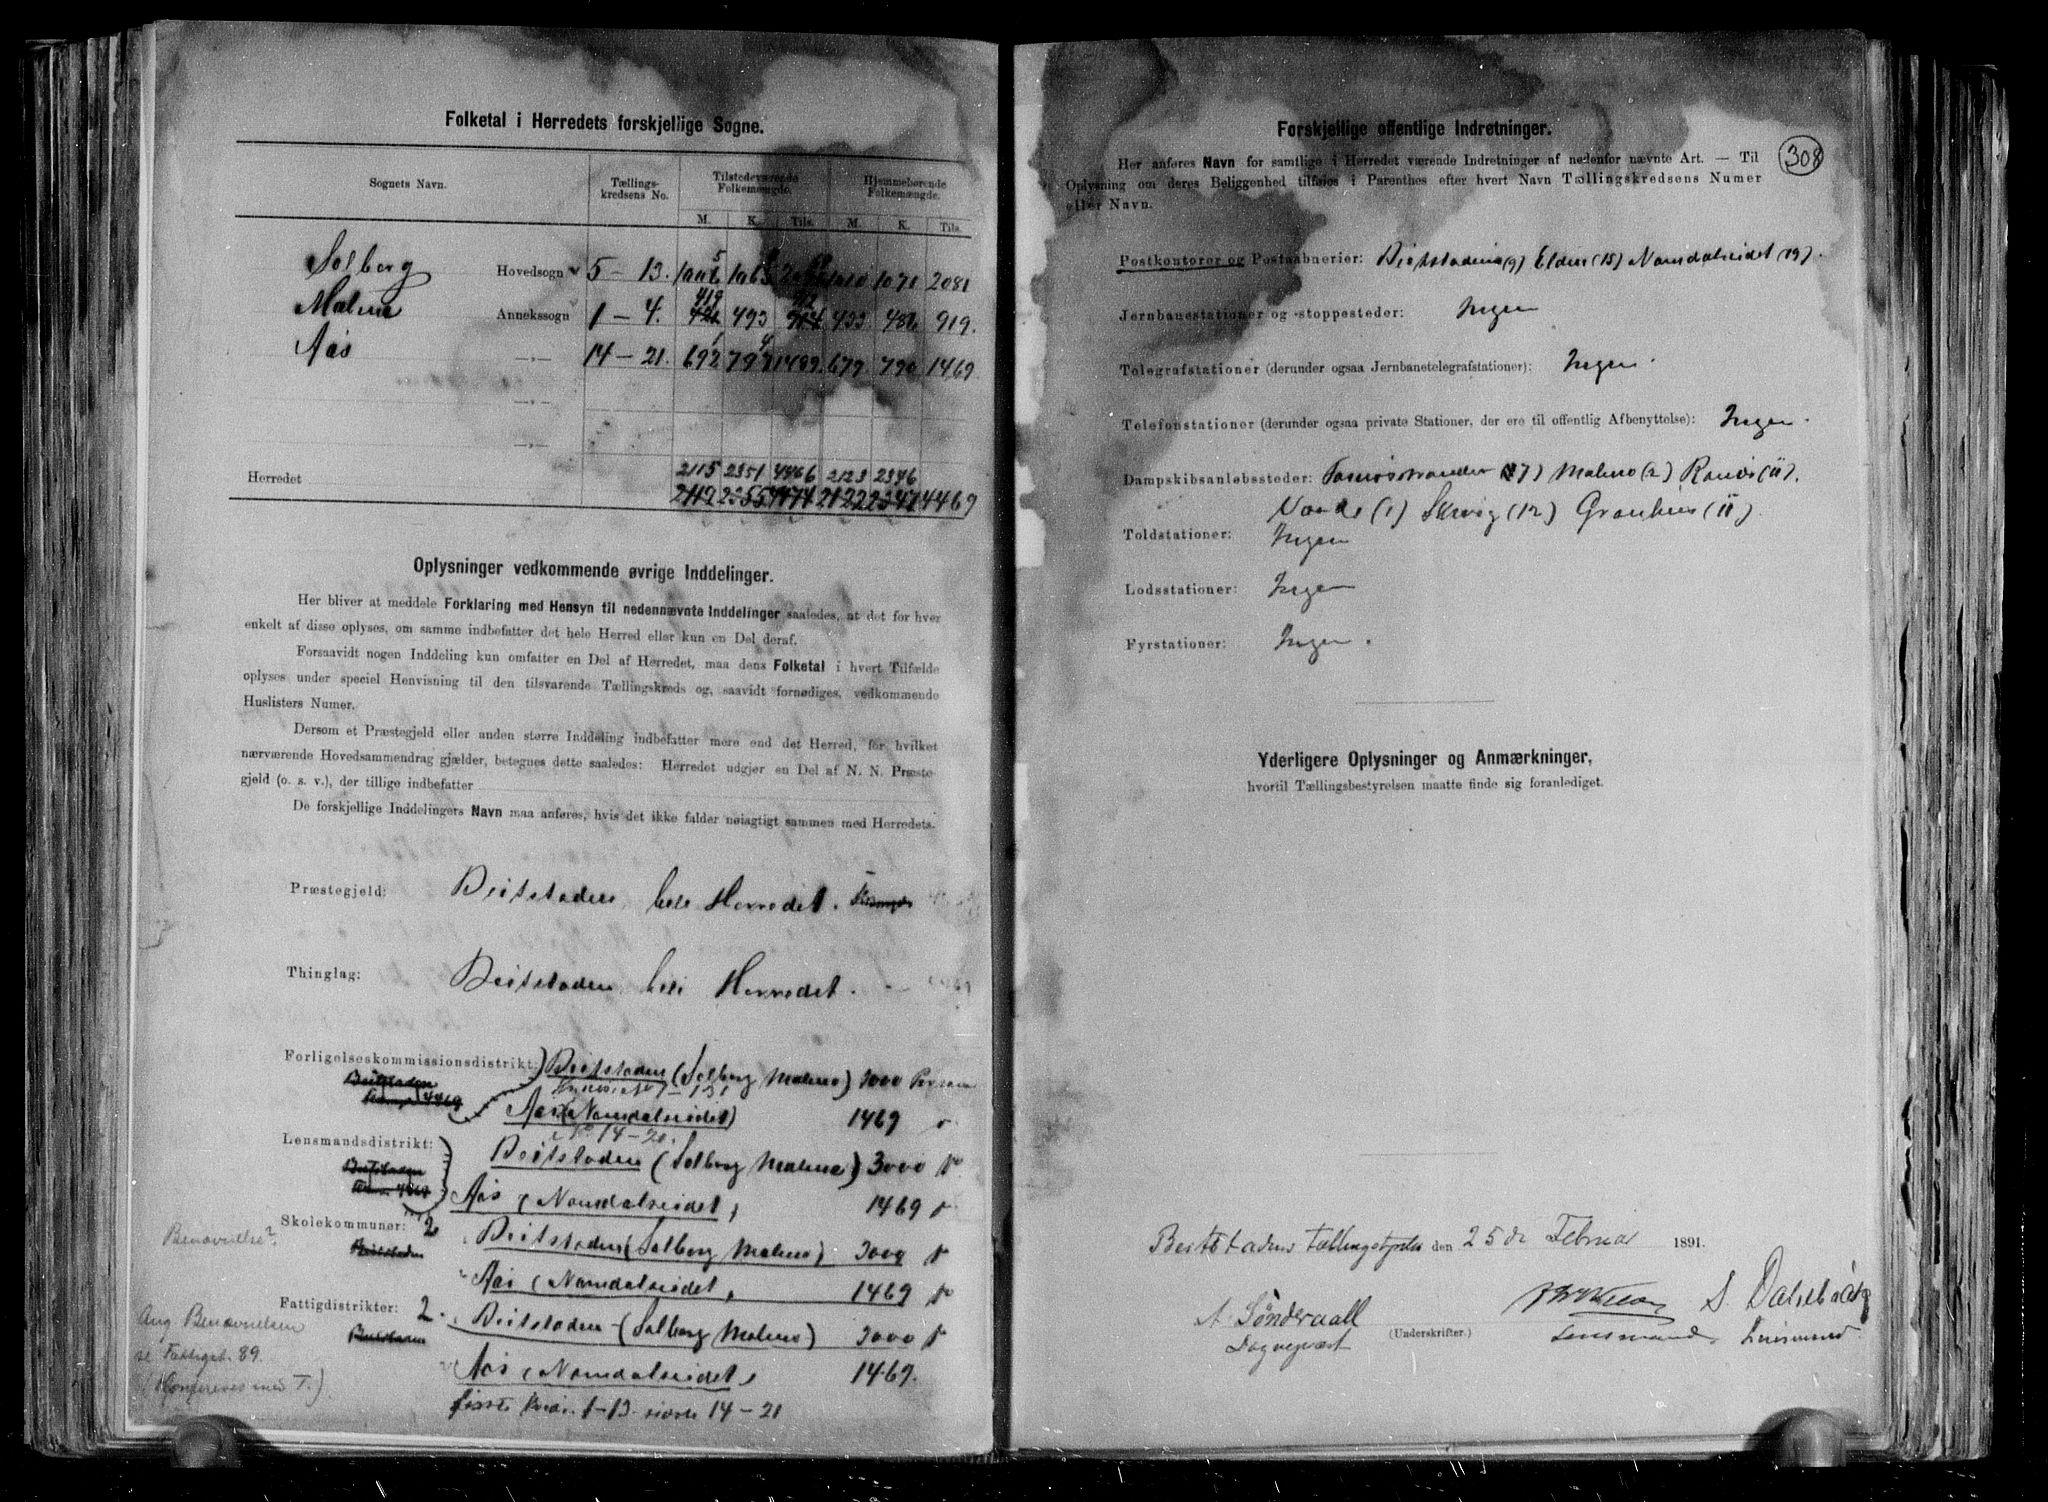 Folketal i Herredets forskjellige Sogne.
Sognets Navn. Tællings-kredsens No. Tilstedeværende Folkemængde. Hjemmehørende Folkemængde.
M. K. Tils. M. K. Tils.
Solberg Hovedsogn 5 – 13. 1010 1071 2081
Malmo Annekssogn 1 – 4. 419 493 912 433 486 919.
Aas —„— 14 – 21. 679 790 1469
—„—
—„—
2115 2351 4466 2123 2346
Herredet 4469
Oplysninger vedkommende øvrige Inddelinger.
Her bliver at meddele Forklaring med Hensyn til nedennævnte Inddelinger saaledes, at det for hver
enkelt af disse oplyses, om samme indbefatter det hele Herred eller kun en Del deraf.
Forsaavidt nogen Inddeling kun omfatter en Del af Herredet, maa dens Folketal i hvert Tilfælde
oplyses under speciel Henvisning til den tilsvarende Tællingskreds og, saavidt fornødiges, vedkommende
Huslisters Numer.
Dersom et Præstegjeld eller anden større Inddeling indbefatter mere end det Herred, for hvilket
nærværende Hovedsammendrag gjælder, betegnes dette saaledes: Herredet udgjør en Del af N. N. Præste-
gjeld (o. s. v.), der tillige indbefatter
De forskjellige Inddelingers Navn maa anføres, hvis det ikke falder nøiagtigt sammen med Herredets.
Præstegjeld: Beitstaden, hele Herredet.
Thinglag: Beitstaden, hele Herredet.
Forligelseskommissionsdistrikt: Beitstaden (Solberg Malmo) 3000 Person
Beitstaden
4469 Aas (Namdalseidet) 1469
No 14 – 21.
Lensmandsdistrikt: Beitstaden (Solberg Malmo) 3000
Beitstaden
4469 Aas (Namdalseidet, 1469
Skolekommuner: 2 Beitstaden (Solberg Malmo) 3000
Benævnelse?
Beitstaden
Aas (Namdalseidet, 1469
Fattigdistrikter: 2. Beitstaden (Solberg Malmo) 3000
Ang Benævnelsen
Beitstaden
se Fattigst. 89.
Aas (Namdalseidet, 1469.
(Konfereres med T.)
første Kreds 1–13 sidste 14 – 21
308
Forskjellige offentlige Indretninger.
Her anføres Navn for samtlige i Herredet værende Indretninger af nedenfor nævnte Art. — Til
Oplysning om deres Beliggenhed tilføies i Parenthes efter hvert Navn Tællingskredsens Numer
eller Navn.
Postkontorer og Postaabnerier: Beitstaden (9) Elden (15) Namdalseidet (19).
Jernbanestationer og -stoppesteder: Ingen
Telegrafstationer (derunder ogsaa Jernbanetelegrafstationer): Ingen.
Telefonstationer (derunder ogsaa private Stationer, der ere til offentlig Afbenyttelse): Ingen.
Dampskibsanløbssteder: (7) Malmo (2) (11).
(1) (12) (11)
Toldstationer: Ingen
Lodsstationer: Ingen
Fyrstationer: Ingen.
Yderligere Oplysninger og Anmærkninger,
hvortil Tællingsbestyrelsen maatte finde sig foranlediget.
Beitstadens den 25de Februar 1891.
A Sønderaall S. Dahlbakk
(Underskrifter.) Lensmand. Lensmand.